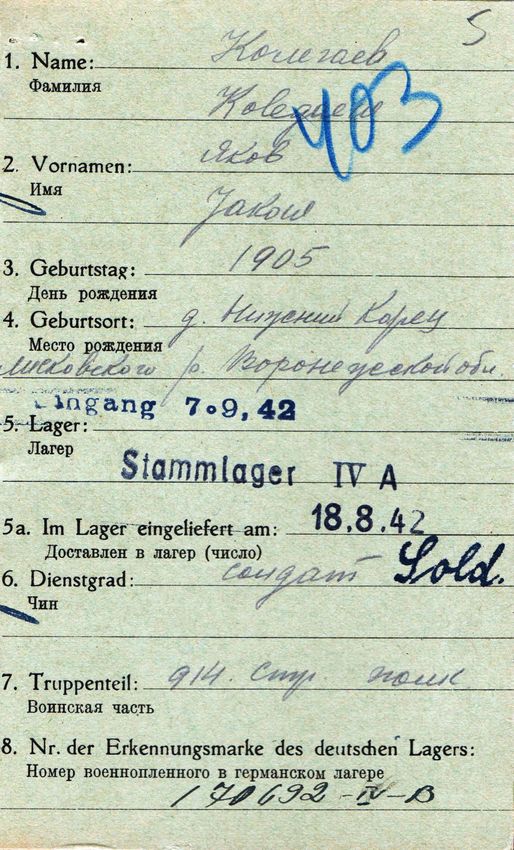 5
1. Name: Колегаев
Фамилия
403
2. Vornamen: Яков
Имя
Jakow
3. Geburtstag: 1905
День рождения
4. Geburtsort: д. Нижний Карец
Место рождения
лисковского р. Воронежской обл.
Eingang 7.9,42
5. Lager:
Лагер
Stammlager IV A
5a. Im Lager eingeliefert am: 18.8.42
Доставлен в лагер (число)
6. Dienstgrad: солдат Sold.
Чин
7. Truppenteil: 914. стр. полк
Воинская часть
8. Nr. der Erkennungsmarke des deutschen Lagers:
Номер военнопленного в германском лагере
170692-IV-B